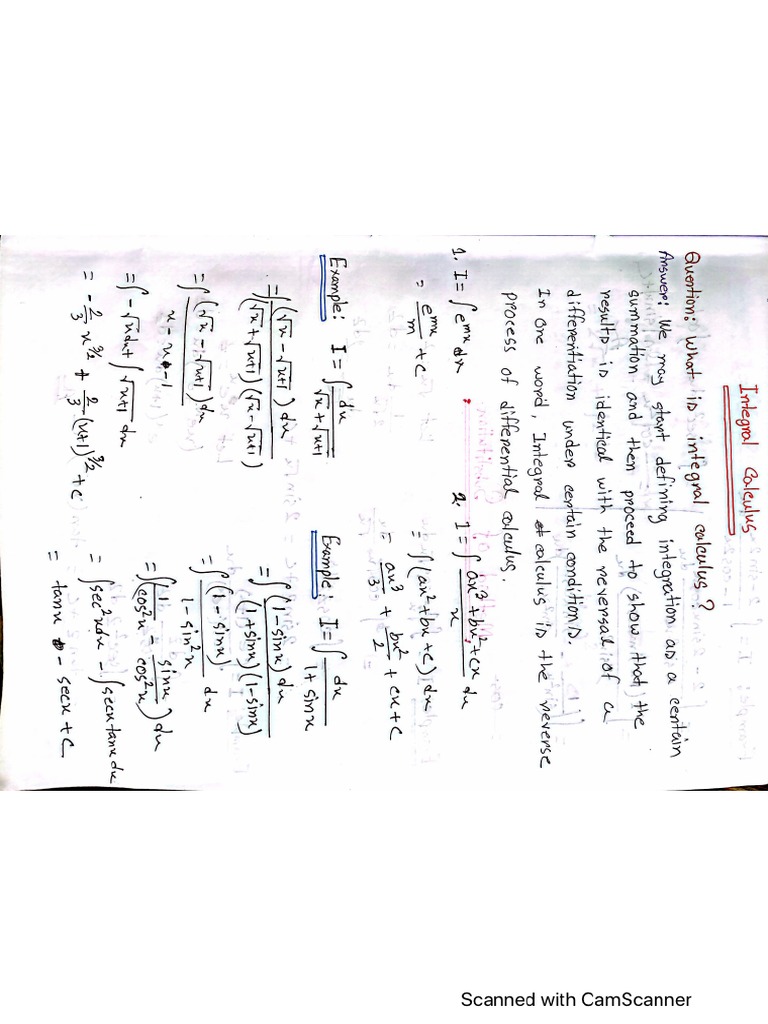 Integral Calculus
Question: What is integral calculus?
Answer: We may start defining integration as a certain
summation and then proceed to show that the
results is identical with the reversal of a
differentiation under certain conditions.
In one word, Integral calculus is the reverse
process of differential calculus.
1. I = ∫ e^{mx} dx
= e^{mx}/m + c
2. I = ∫ (ax³ + bx² + cx)/x dx
= ∫ (ax² + bx + c) dx
= ax³/3 + bx²/2 + cx + c
Example: I = ∫ dx/(√x + √(x+1))
= ∫ (√x - √(x+1)) dx / ((√x + √(x+1)) (√x - √(x+1)))
= ∫ (√x - √(x+1)) dx / (x - x - 1)
= ∫ -√x dx + ∫ √(x+1) dx
= -2/3 x^{3/2} + 2/3 (x+1)^{3/2} + c
Example: I = ∫ dx/(1 + sinx)
= ∫ (1 - sinx) dx / ((1 + sinx) (1 - sinx))
= ∫ (1 - sinx)/(1 - sin²x) dx
= ∫ (1/cos²x - sinx/cos²x) dx
= ∫ sec²x dx - ∫ secx tanx dx
= tanx - secx + c
Scanned with CamScanner